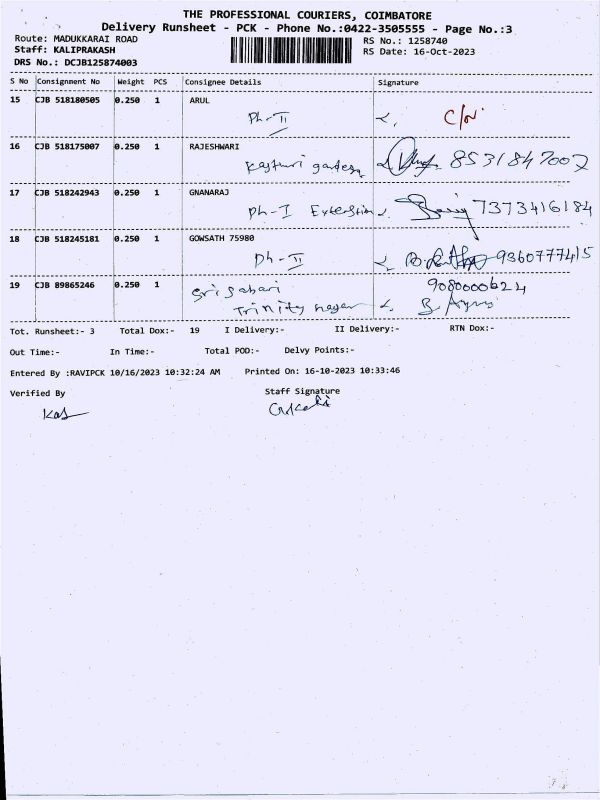 THE PROFESSIONAL COURIERS, COIMBATORE
Delivery Runsheet - PCK - Phone No.:0422-3505555 - Page No.:3
Route: MADUKKARAI ROAD RS No.: 1258740
Staff: KALIPRAKASH RS Date: 16-Oct-2023
DRS No.: DCJB125874003
S No Consignment No Weight PCS Consignee Details Signature
15 CJB 518180505 0.250 1 ARUL
Ph-II C/N
16 CJB 518175007 0.250 1 RAJESHWARI
Kasturi garden 8531847007
17 CJB 518242943 0.250 1 GNANARAJ
Ph-I Extenstion 7373416184
18 CJB 518245181 0.250 1 GOWSATH 75980
Ph-II 9360777415
19 CJB 89865246 0.250 1 Sri Sabari 9080000624
Trinity nagar
Tot. Runsheet:- 3 Total Dox:- 19 I Delivery:- II Delivery:- RTN Dox:-
Out Time:- In Time:- Total POD:- Delvy Points:-
Entered By :RAVIPCK 10/16/2023 10:32:24 AM Printed On: 16-10-2023 10:33:46
Verified By Staff Signature